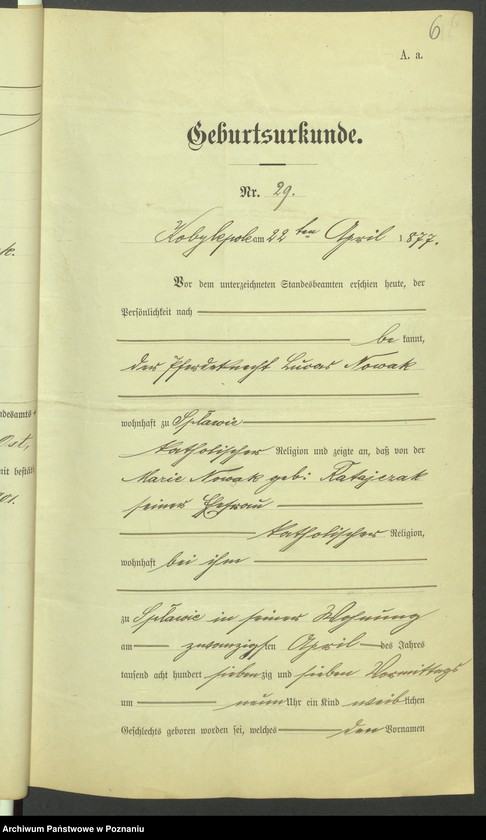 6
A. a.
Geburtsurkunde.
Nr. 29.
Kobylepole am 22 ten April 1877.
Vor dem unterzeichneten Standesbeamten erschien heute, der
Persönlichkeit nach
be kannt,
der Pferdeknecht Lucas Nowak
wohnhaft zu Spławie
katholischer Religion und zeigte an, daß von der
Marie Nowak geb: Ratajczak
seiner Ehefrau
katholischer Religion,
wohnhaft bei ihm
zu Spławie in seiner Wohnung
am zwanzigsten April des Jahres
tausend acht hundert siebenzig und sieben Vormittags
um neun Uhr ein Kind weiblichen
Geschlechts geboren worden sei, welches den Vornamen
k.
ndesamts
Ost,
mit bestät
Archiwum Państwowe w Poznaniu